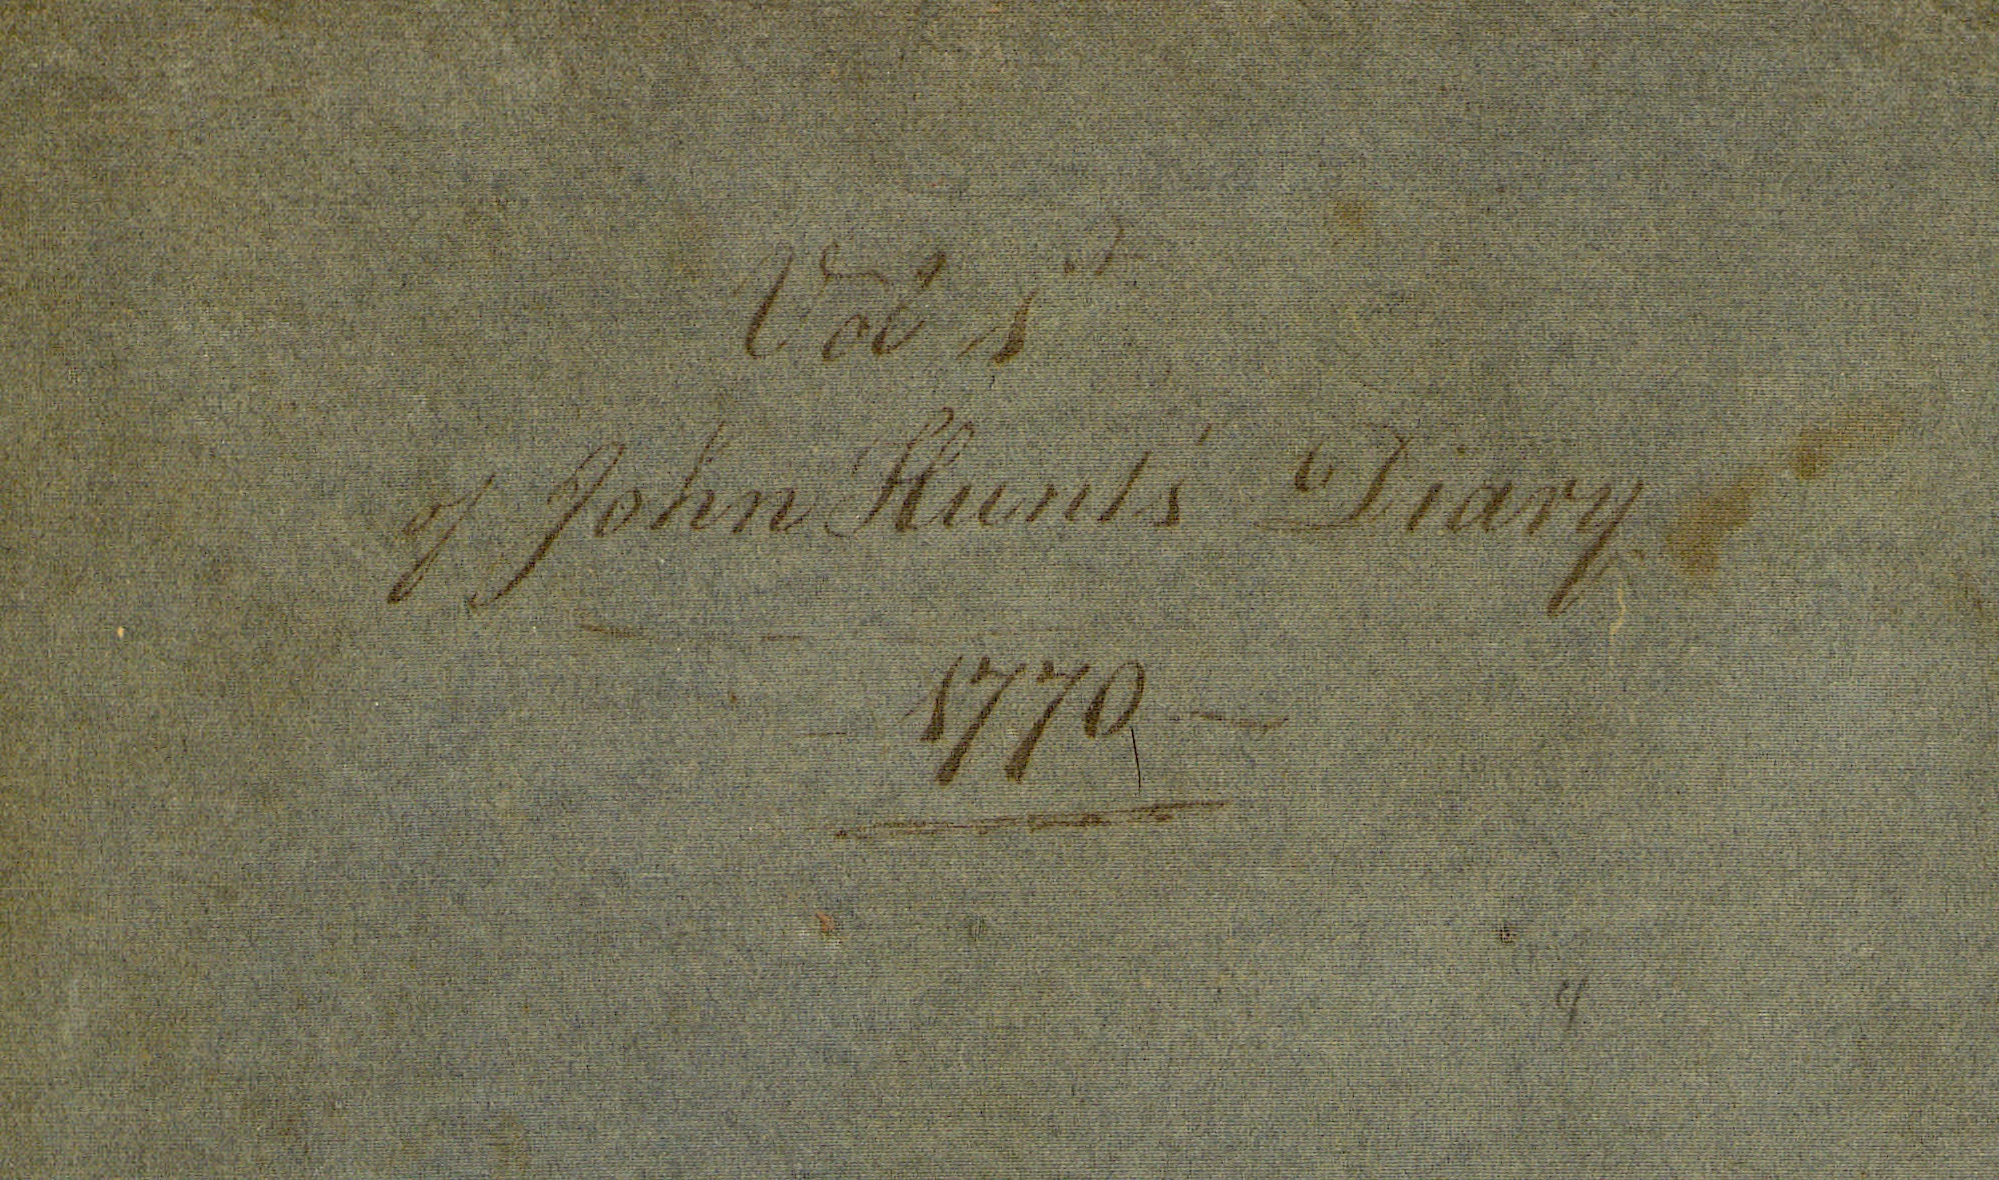 Vol 1st
of John Hunts' Diary
1770